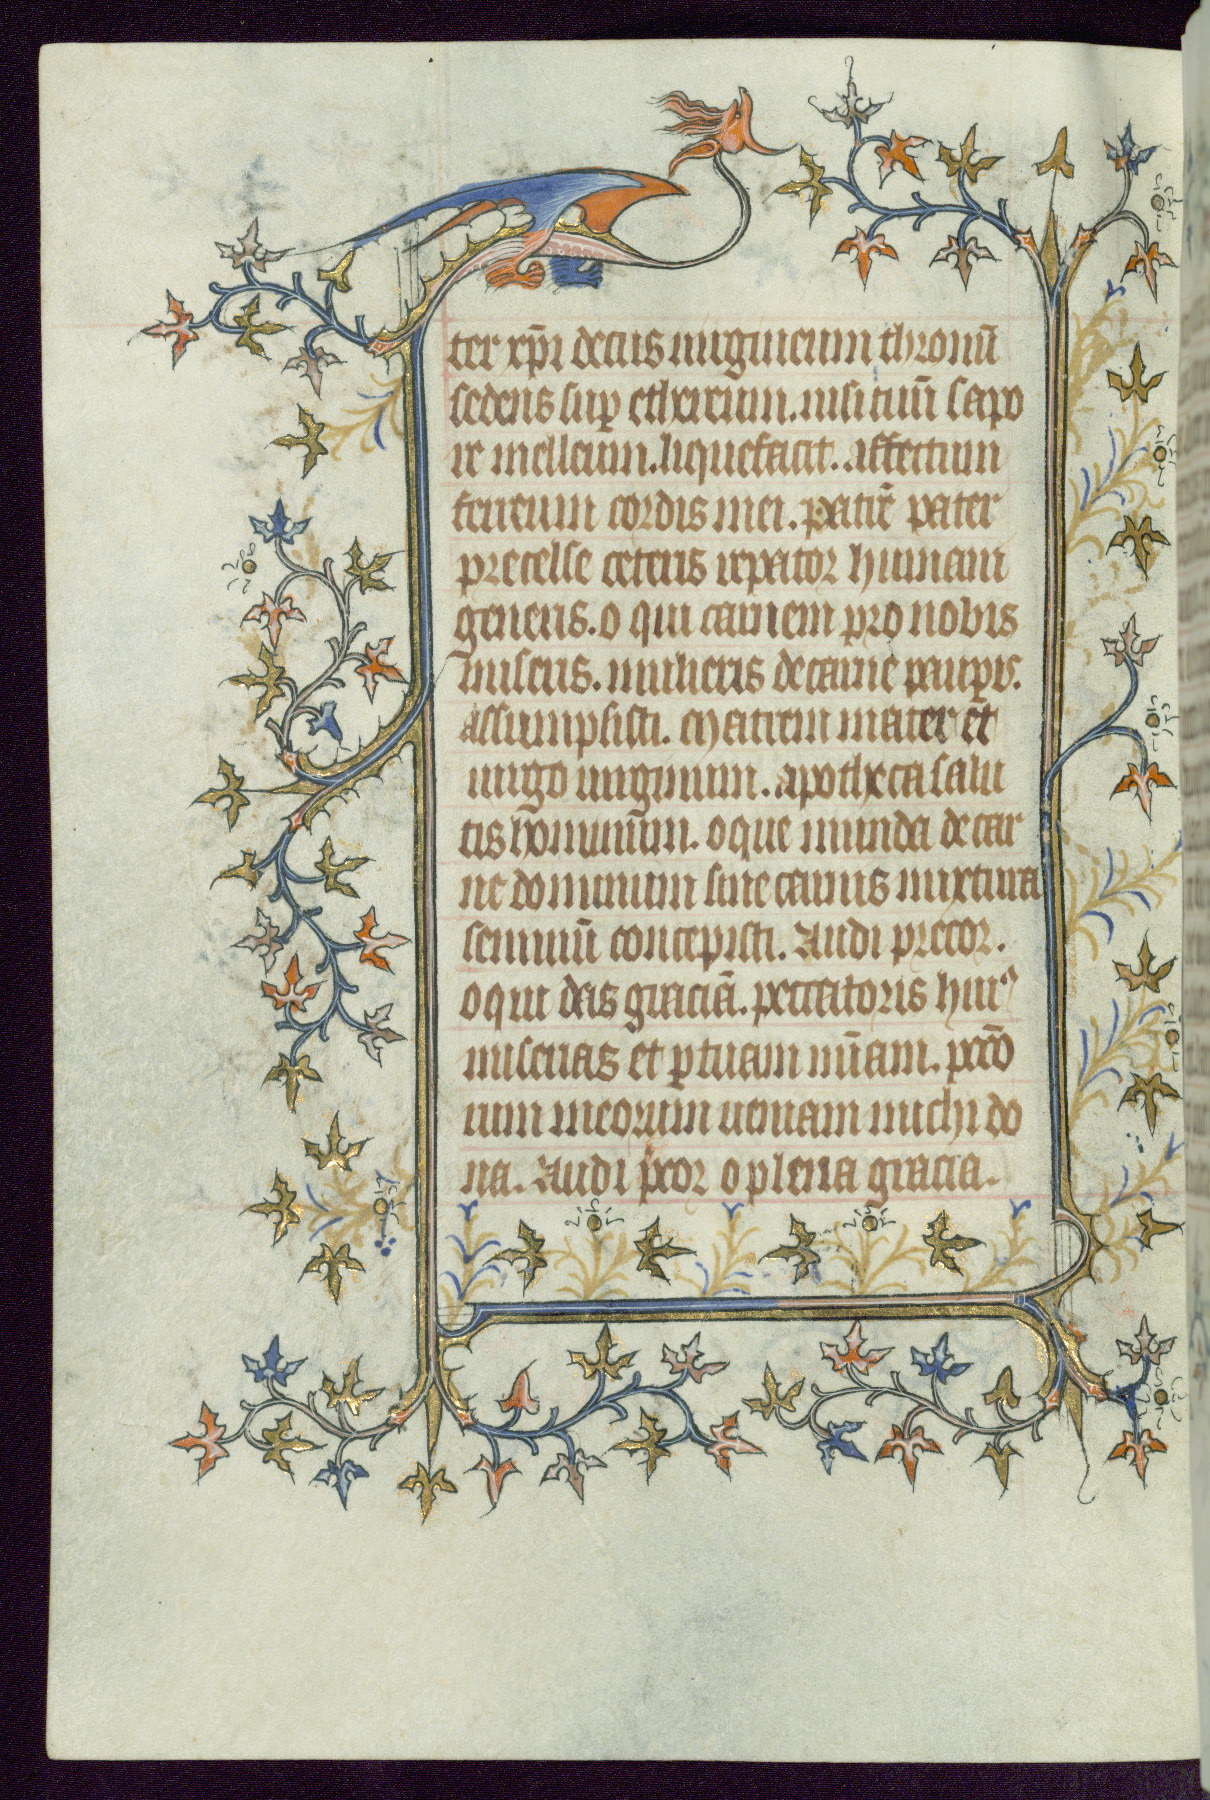 ter xp̄i decus uirgineum thronū
sedens sup̱ ethereum. nisi tuū sapo
re melleum. liquefacit. affectum
ferreum cordis mei. patrē pater
precelse ceteris reparator humani
generis. o qui carnem pro nobis
miseris. mulieris de carne paup̱is.
assumpsisti. Matrem mater et
uirgo uirginum. apotheca salu
tis hominum. o que munda de car
ne dominum sine carnis mixtura
seminū concepisti. Audi precor.
o qui das graciā. peccatoris huiꝰ
miserias et p̱ tuam mīam. pccō
rum meorum ueniam michi do
na. Audi p̄cor o plena gracia.